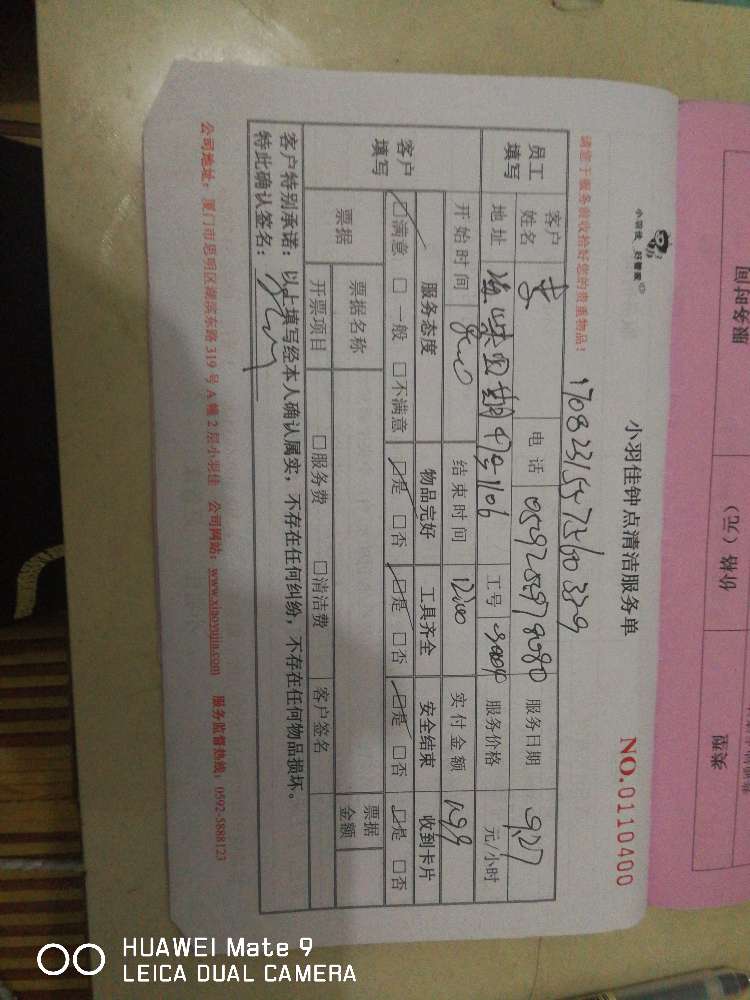 小羽佳 好管家
小羽佳钟点清洁服务单
NO.0110400
请您于服务前收拾好您的贵重物品!
员工填写
客户姓名 李 电话 服务日期 9.27
地址 工号 服务价格 元/小时
开始时间 结束时间 12:00 实付金额 199
客户填写
服务态度 物品完好 工具齐全 安全结束 收到卡片
☑满意 □一般 □不满意 ☑是 □否 ☑是 □否 ☑是 □否 ☑是 □否
票据
票据名称 票据金额
开票项目 □服务费 □清洁费 客户签名
客户特别承诺:以上填写经本人确认属实,不存在任何纠纷,不存在任何物品损坏。
特此确认签名:
公司地址:厦门市思明区湖滨东路319号A幢2层小羽佳 公司网站:www.xiaoyujia.com 服务监督热线:0592-5888123
服务时间
价格(元)
类型
HUAWEI Mate 9
LEICA DUAL CAMERA